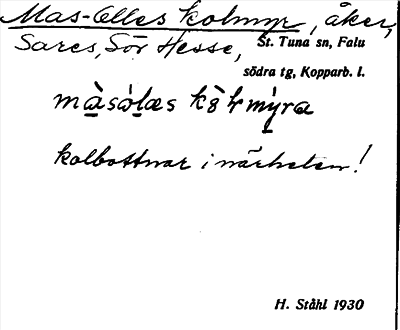 Mas-Olles kolmyr, åker,
Sares, Sör Hesse, St. Tuna sn, Falu
södra tg, Kopparb. l.
kolbottnar i närheten!
H. Ståhl 1930